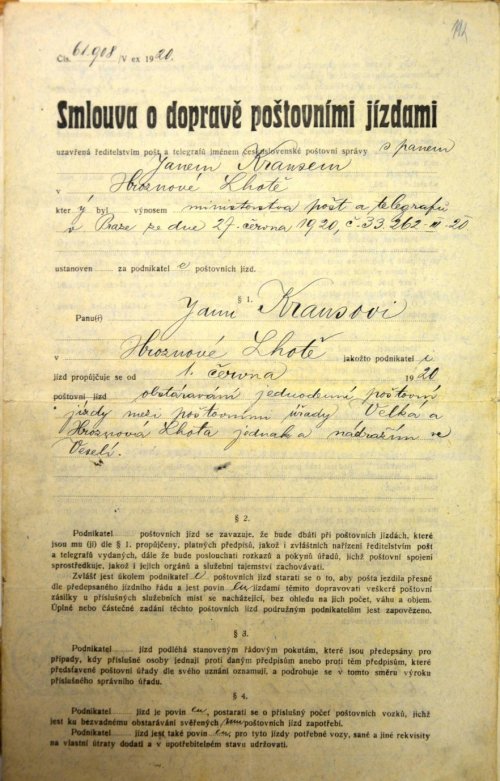 Čís. 61.908/V ex 1920.
Smlouva o dopravě poštovními jízdami
uzavřená ředitelstvím pošt a telegrafů jménem československé poštovní správy s panem
Janem Krausem
v Hroznové Lhotě
kter ý byl výnosem ministerstva pošt a telegrafů
v Praze ze dne 27. června 1920, č. 33.262-III-20
ustanoven za podnikatel e poštovních jízd.
§ 1.
Panu(í) Janu Krausovi
v Hroznové Lhotě jakožto podnikatel i
jízd propůjčuje se od 1. června 1920
poštovní jízd obstarávání jednodenní poštovní
jízdy mezi poštovními úřady Velká a
Hroznová Lhota jednak a nádražím ve
Veselí.
§ 2.
Podnikatel poštovních jízd se zavazuje, že bude dbáti při poštovních jízdách, které
jsou mu (jí) dle § 1. propůjčeny, platných předpisů, jakož i zvláštních nařízení ředitelstvím pošt
a telegrafů vydaných, dále že bude poslouchati rozkazů a pokynů úřadů, jichž poštovní spojení
sprostředkuje, jakož i jejich orgánů a služební tajemství zachovávati.
Zvlášť jest úkolem podnikatel e poštovních jízd starati se o to, aby pošta jezdila přesně
dle předepsaného jízdního řádu a jest povin en jízdami těmito dopravovati veškeré poštovní
zásilky u příslušných služebních míst se nacházející, bez ohledu na jich počet, váhu a objem.
Úplné nebo částečné zadání těchto poštovních jízd podružným podnikatelům jest zapovězeno.
§ 3.
Podnikatel jízd podléhá stanoveným řádovým pokutám, které jsou předepsány pro
případy, kdy příslušné osoby jednají proti daným předpisům anebo proti těm předpisům, které
představené poštovní úřady dle svého uznání oznamují, a podrobuje se v tomto směru výroku
příslušného správního úřadu.
§ 4.
Podnikatel jízd je povin en, postarati se o příslušný počet poštovních vozků, jichž
jest ku bezvadnému obstarávání svěřených mu poštovních jízd zapotřebí.
Podnikatel jízd jest také povin en, pro tyto jízdy potřebné vozy, saně a jiné rekvisity
na vlastní útraty dodati a v upotřebitelném stavu udržovati.